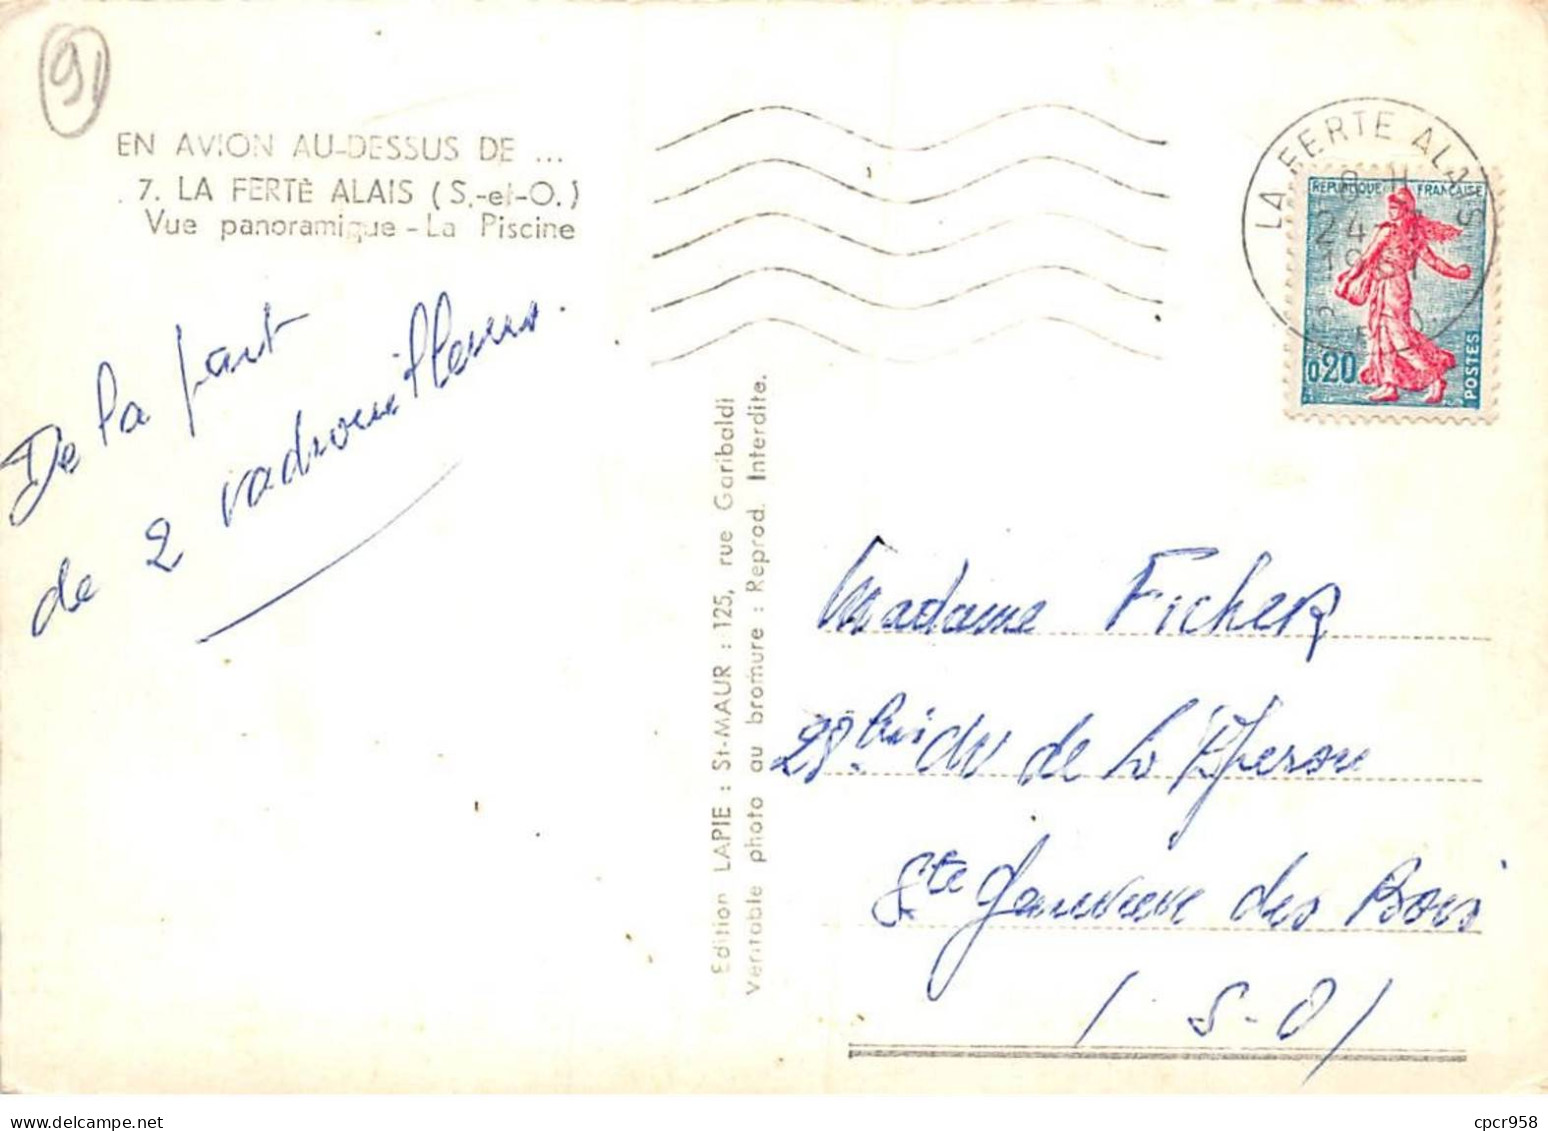 91
EN AVION AU-DESSUS DE ...
7. LA FERTÈ ALAIS (S.-et-O.)
Vue panoramique - La Piscine
De la part
de 2 vadrouilleurs.
Edition LAPIE : St-MAUR : 125, rue Garibaldi
Véritable photo au bromure : Reprod. Interdite.
LA FERTE ALAIS
24
REPUBLIQUE FRANÇAISE
0,20
POSTES
Madame Ficher
28 bis de
Ste Genevieve des Bois
(S-O)
cpcr958